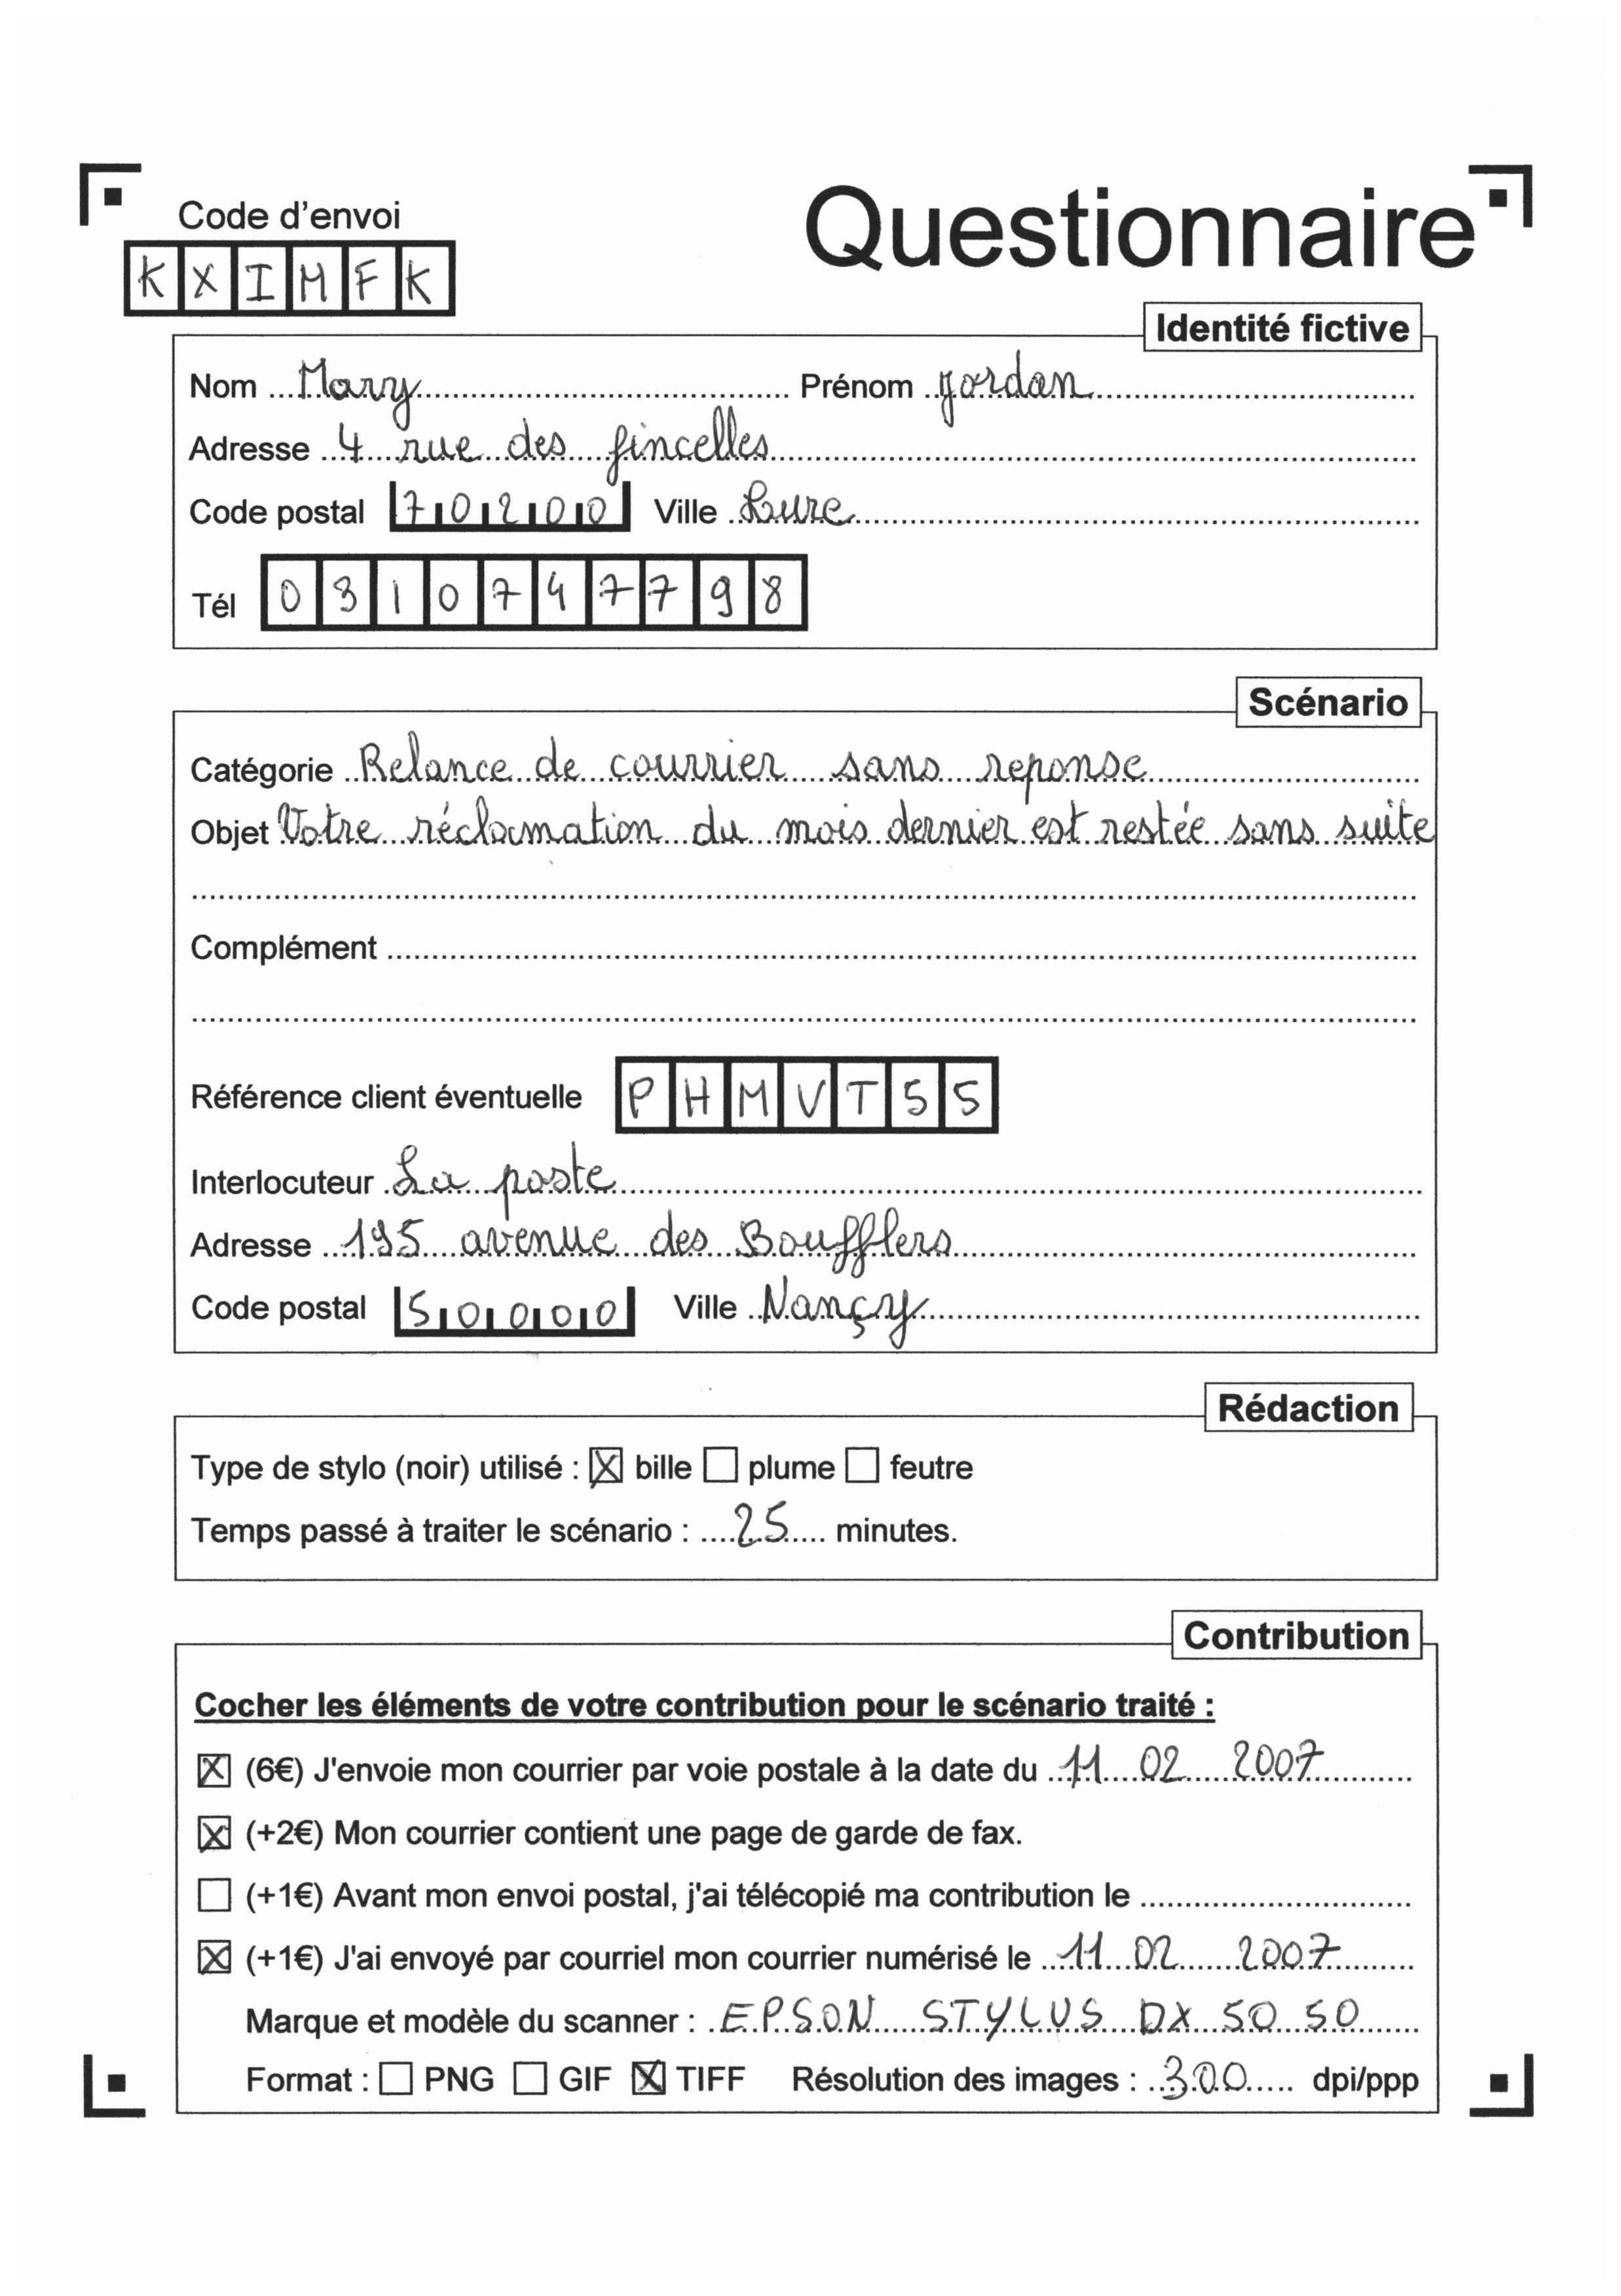 Code d'envoi
Questionnaire
KXIMFK
Identité fictive
Nom Mary Prénom jordan
Adresse 4 rue des fincelles
Code postal 70200 Ville Lure
Tél 0310747798
Scénario
Catégorie Relance de courrier sans reponse
Objet Votre réclamation du mois dernier est restée sans suite
Complément
Référence client éventuelle PHMVT55
Interlocuteur La poste
Adresse 195 avenue des Boufflers
Code postal 50000 Ville Nançy
Rédaction
Type de stylo (noir) utilisé : ☒ bille ☐ plume ☐ feutre
Temps passé à traiter le scénario : 25 minutes.
Contribution
Cocher les éléments de votre contribution pour le scénario traité :
☒ (6€) J'envoie mon courrier par voie postale à la date du 11 02 2007
☒ (+2€) Mon courrier contient une page de garde de fax.
☐ (+1€) Avant mon envoi postal, j'ai télécopié ma contribution le
☒ (+1€) J'ai envoyé par courriel mon courrier numérisé le 11 02 2007
Marque et modèle du scanner : EPSON STYLUS DX 50 50
Format : ☐ PNG ☐ GIF ☒ TIFF Résolution des images : 300 dpi/ppp